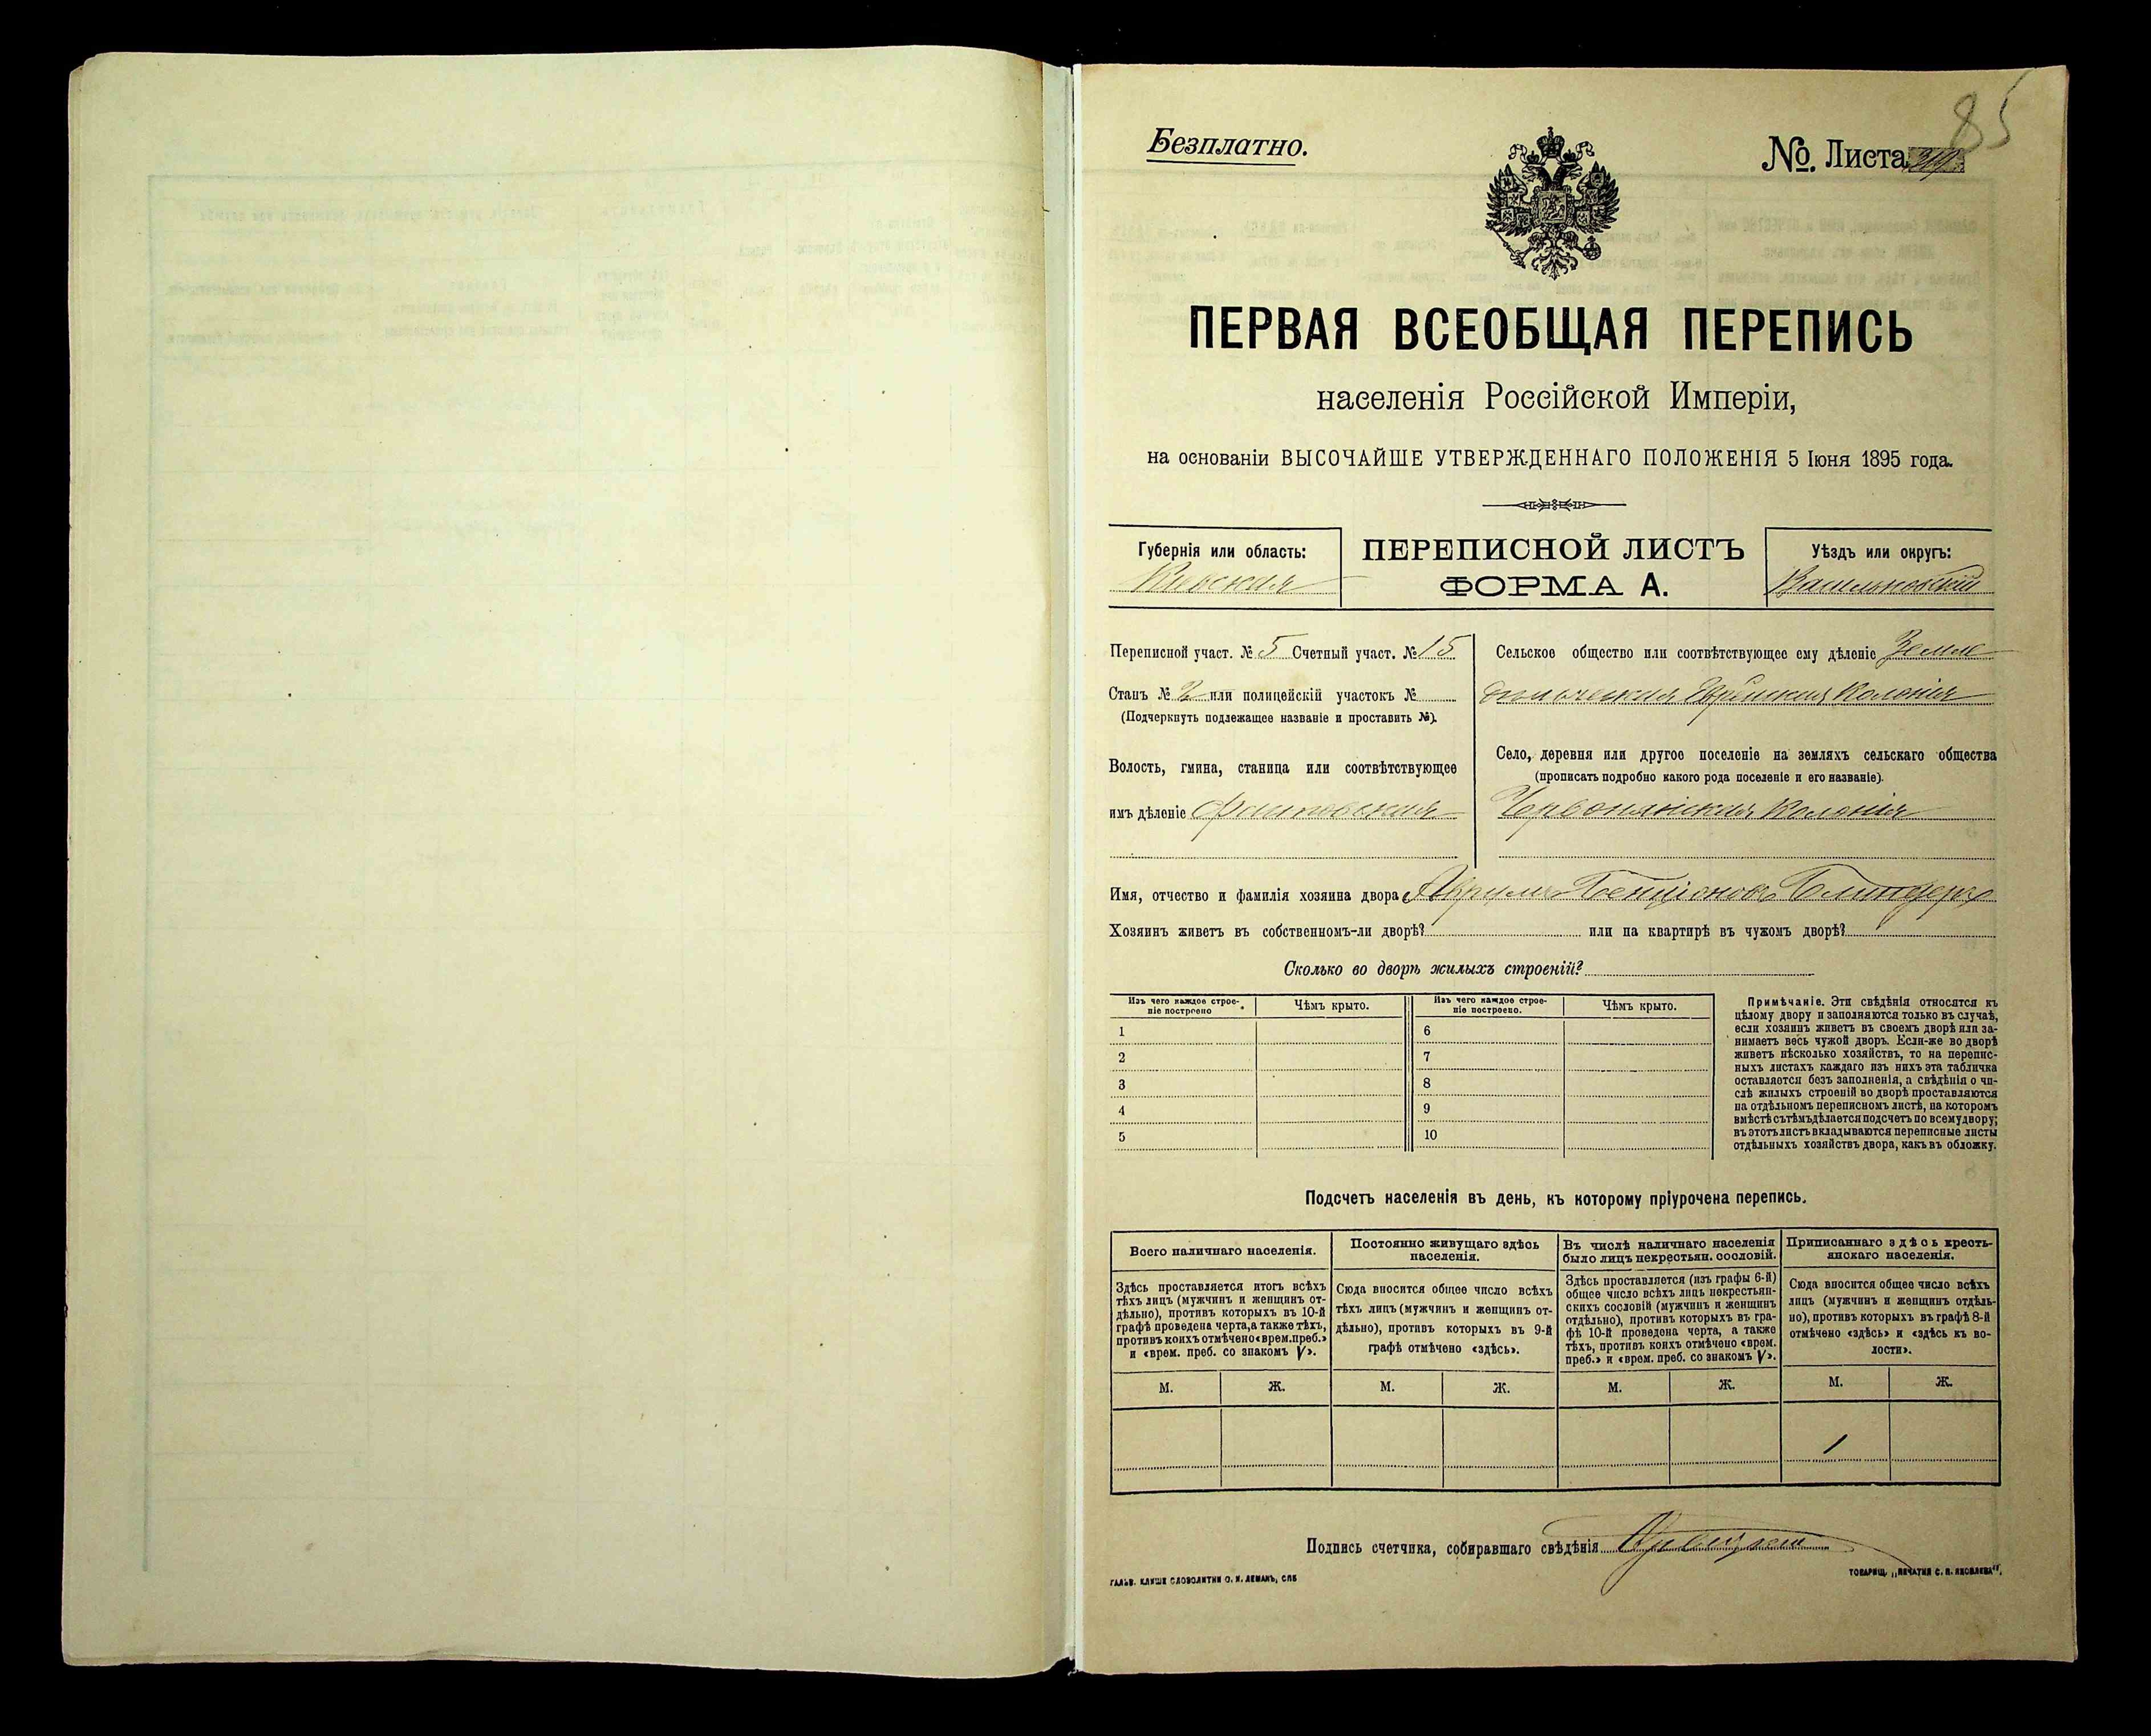 85
Безплатно.
№. Листа
ПЕРВАЯ ВСЕОБЩАЯ ПЕРЕПИСЬ
населенія Россійской Имперіи,
на основаніи ВЫСОЧАЙШЕ УТВЕРЖДЕННАГО ПОЛОЖЕНІЯ 5 Іюня 1895 года.
Губернія или область:
Кіевская
ПЕРЕПИСНОЙ ЛИСТЪ
ФОРМА А.
Уѣздъ или округъ:
Васильковскій
Переписной участ. № 5 Счетный участ. № 15
Станъ № 2 или полицейскій участокъ №
(Подчеркнуть подлежащее названіе и проставить №).
Волость, гмина, станица или соотвѣтствующее
имъ дѣленіе Фастовская
Сельское общество или соотвѣтствующее ему дѣленіе Земле
дѣльческая Еврейская Колонія
Село, деревня или другое поселеніе на земляхъ сельскаго общества
(прописать подробно какого рода поселеніе и его названіе).
Червонянская Колонія
Имя, отчество и фамилія хозяина двора Бенціоновъ
Хозяинъ живетъ въ собственномъ-ли дворѣ? или на квартирѣ въ чужомъ дворѣ?
Сколько во дворѣ жилыхъ строеній?
Изъ чего каждое строе-
ніе построено
Чѣмъ крыто.
Изъ чего каждое строе-
ніе построено.
Чѣмъ крыто.
1 6
2 7
3 8
4 9
5 10
Примѣчаніе. Эти свѣдѣнія относятся къ
цѣлому двору и заполняются только въ случаѣ,
если хозяинъ живетъ въ своемъ дворѣ или за-
нимаетъ весь чужой дворъ. Если-же во дворѣ
живетъ нѣсколько хозяйствъ, то на перепис-
ныхъ листахъ каждаго изъ нихъ эта табличка
оставляется безъ заполненія, а свѣдѣнія о чи-
слѣ жилыхъ строеній во дворѣ проставляются
на отдѣльномъ переписномъ листѣ, на которомъ
вмѣстѣ съ тѣмъ дѣлается подсчетъ по всему двору;
въ этотъ листъ вкладываются переписные листы
отдѣльныхъ хозяйствъ двора, какъ въ обложку.
Подсчетъ населенія въ день, къ которому пріурочена перепись.
Всего наличнаго населенія.
Постоянно живущаго здѣсь
населенія.
Въ числѣ наличнаго населенія
было лицъ некрестьян. сословій.
Приписаннаго здѣсь кресть-
янскаго населенія.
Здѣсь проставляется итогъ всѣхъ
тѣхъ лицъ (мужчинъ и женщинъ от-
дѣльно), противъ которыхъ въ 10-й
графѣ проведена черта, а также тѣхъ,
противъ коихъ отмѣчено «врем. преб.»
и «врем. преб. со знакомъ V».
Сюда вносится общее число всѣхъ
тѣхъ лицъ (мужчинъ и женщинъ от-
дѣльно), противъ которыхъ въ 9-й
графѣ отмѣчено «здѣсь».
Здѣсь проставляется (изъ графы 6-й)
общее число всѣхъ лицъ некрестьян-
скихъ сословій (мужчинъ и женщинъ
отдѣльно), противъ которыхъ въ гра-
фѣ 10-й проведена черта, а также
тѣхъ, противъ коихъ отмѣчено «врем.
преб.» и «врем. преб. со знакомъ V».
Сюда вносится общее число всѣхъ
лицъ (мужчинъ и женщинъ отдѣль-
но), противъ которыхъ въ графѣ 8-й
отмѣчено «здѣсь» и «здѣсь къ во-
лости».
М. Ж. М. Ж. М. Ж. М. Ж.
1
Подпись счетчика, собиравшаго свѣдѣнія
ГАЛЬВ. КЛИШЕ СЛОВОЛИТНИ О. И. ЛЕМАНЪ, СПБ
ТОВАРИЩ. „ПЕЧАТНЯ С. П. ЯКОВЛЕВА“.